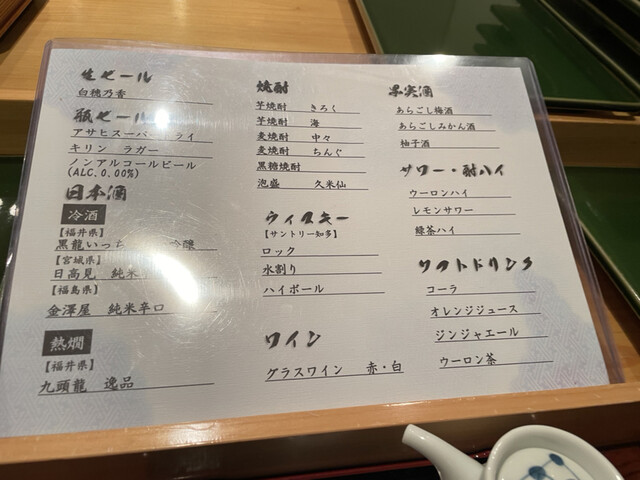 生ビール
白穂乃香
瓶ビール
アサヒスーパードライ
キリン ラガー
ノンアルコールビール
(ALC.0.00%)
日本酒
冷酒
【福井県】
黒龍いっち 吟醸
【宮城県】
日高見 純米
【福島県】
金澤屋 純米辛口
熱燗
【福井県】
九頭龍 逸品
焼酎
芋焼酎 きろく
芋焼酎 海
麦焼酎 中々
麦焼酎 ちんぐ
黒糖焼酎
泡盛 久米仙
ウィスキー
【サントリー知多】
ロック
水割り
ハイボール
ワイン
グラスワイン 赤・白
果実酒
あらごし梅酒
あらごしみかん酒
柚子酒
サワー・酎ハイ
ウーロンハイ
レモンサワー
緑茶ハイ
ソフトドリンク
コーラ
オレンジジュース
ジンジャエール
ウーロン茶